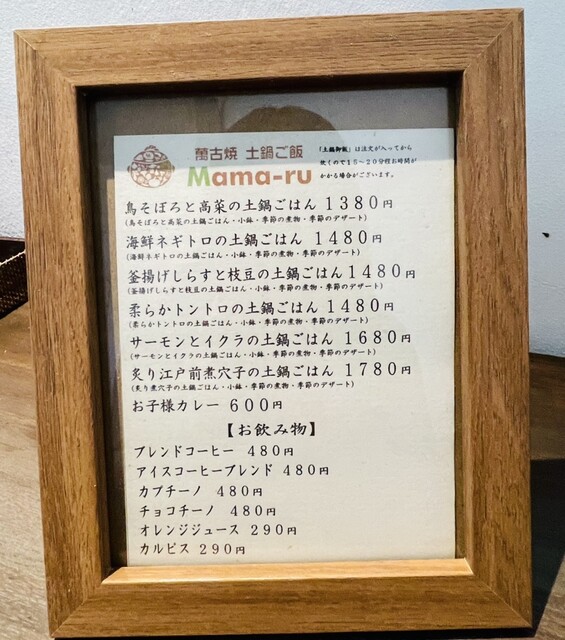 萬古焼 土鍋ご飯
Mama-ru
「土鍋御飯」は注文が入ってから
炊くので15～20分程お時間が
かかる場合がございます。
鳥そぼろと高菜の土鍋ごはん 1380円
(鳥そぼろと高菜の土鍋ごはん・小鉢・季節の煮物・季節のデザート)
海鮮ネギトロの土鍋ごはん 1480円
(海鮮ネギトロの土鍋ごはん・小鉢・季節の煮物・季節のデザート)
釜揚げしらすと枝豆の土鍋ごはん 1480円
(釜揚げしらすと枝豆の土鍋ごはん・小鉢・季節の煮物・季節のデザート)
柔らかトントロの土鍋ごはん 1480円
(柔らかトントロの土鍋ごはん・小鉢・季節の煮物・季節のデザート)
サーモンとイクラの土鍋ごはん 1680円
(サーモンとイクラの土鍋ごはん・小鉢・季節の煮物・季節のデザート)
炙り江戸前煮穴子の土鍋ごはん 1780円
(炙り煮穴子の土鍋ごはん・小鉢・季節の煮物・季節のデザート)
お子様カレー 600円
【お飲み物】
ブレンドコーヒー 480円
アイスコーヒーブレンド 480円
カプチーノ 480円
チョコチーノ 480円
オレンジジュース 290円
カルピス 290円